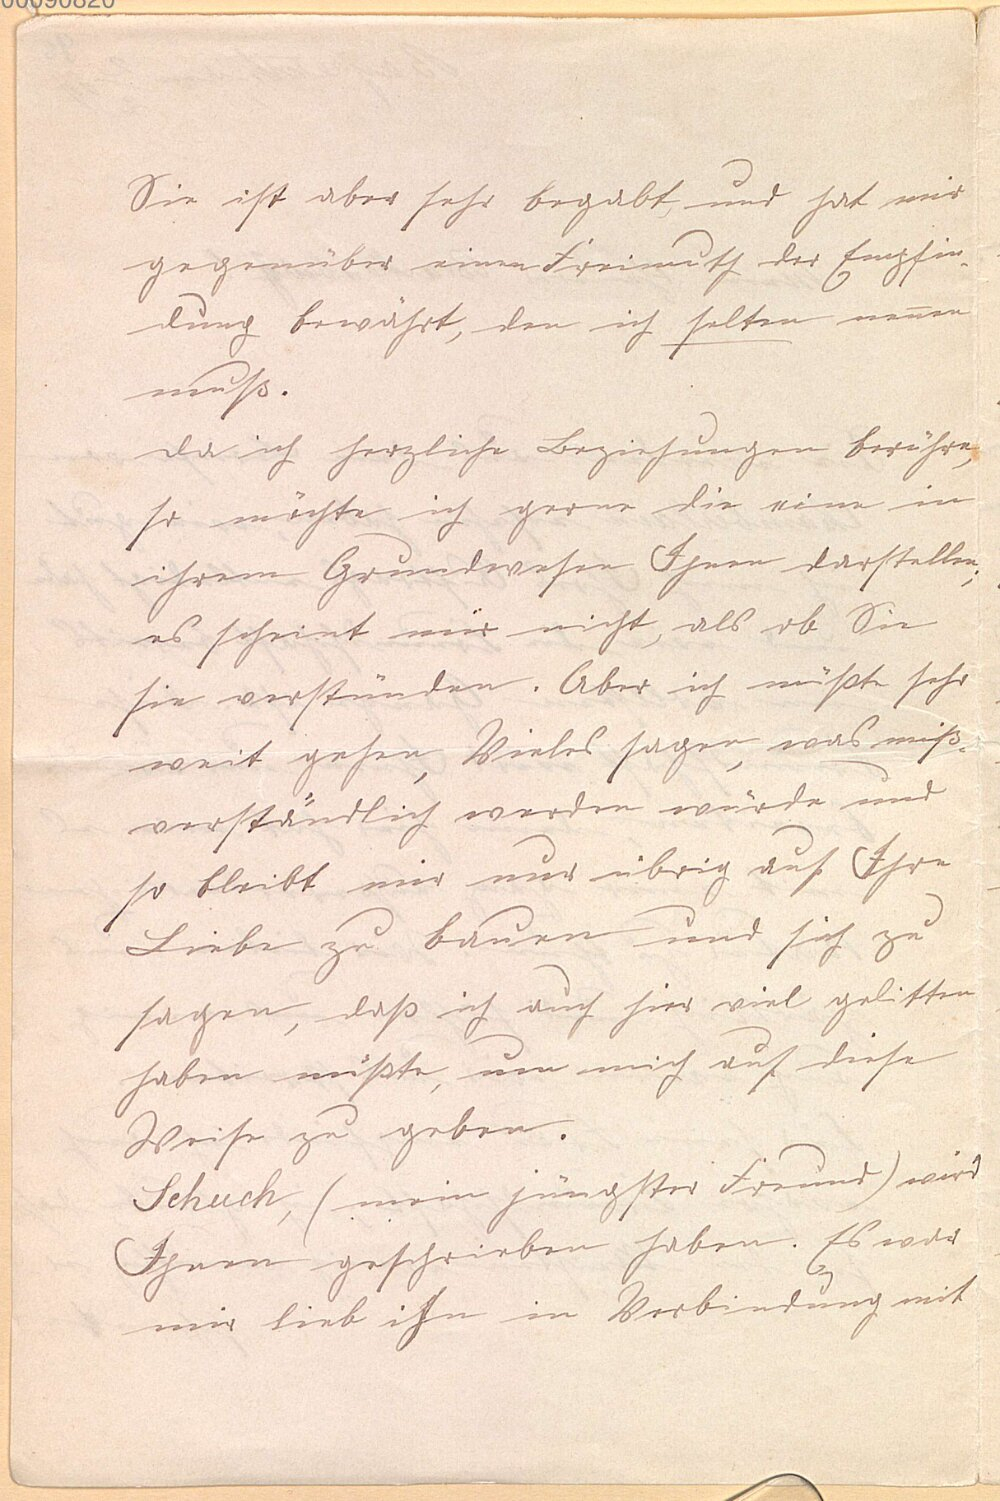 00090820
Sie ist aber sehr begabt, und hat mir
gegenüber einen Freimuth der Empfin-
dung bewährt, den ich selten nennen
muß.
Da ich herzliche Beziehungen berühre,
so möchte ich gerne die eine in
ihrem Grundwesen Ihnen darstellen;
es scheint mir nicht, als ob Sie
sie verstünden. Aber ich müßte sehr
weit gehen, Vieles sagen, was miß-
verständlich werden würde und
so bleibt mir nur übrig auf Ihre
Liebe zu bauen und sich zu
sagen, daß ich auch hier viel gelitten
haben müßte, um mich auf diese
Weise zu geben.
Schuch, (mein jüngster Freund) wird
Ihnen geschrieben haben. Es war
mir lieb ihn in Verbindung mit